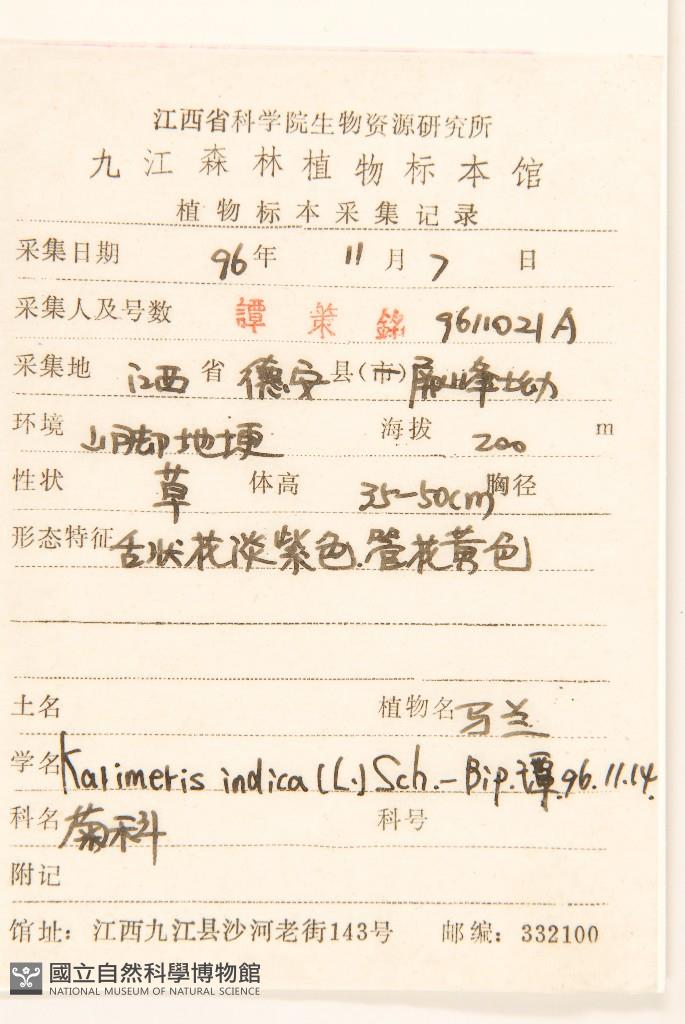 江西省科学院生物资源研究所
九江森林植物标本馆
植物标本采集记录
采集日期 96年 11月 7 日
采集人及号数 譚策銘 9611021A
采集地 江西 省 德安 县(市)
环境 山脚地埂 海拔 200 m
性状 草 体高 35-50cm 胸径
形态特征 舌状花淡紫色.管花黄色
土名 植物名 马兰
学名 Kalimeris indica (L.) Sch.-Bip. 谭.96.11.14.
科名 菊科 科号
附记
馆址：江西九江县沙河老街143号 邮编：332100
國立自然科學博物館
NATIONAL MUSEUM OF NATURAL SCIENCE